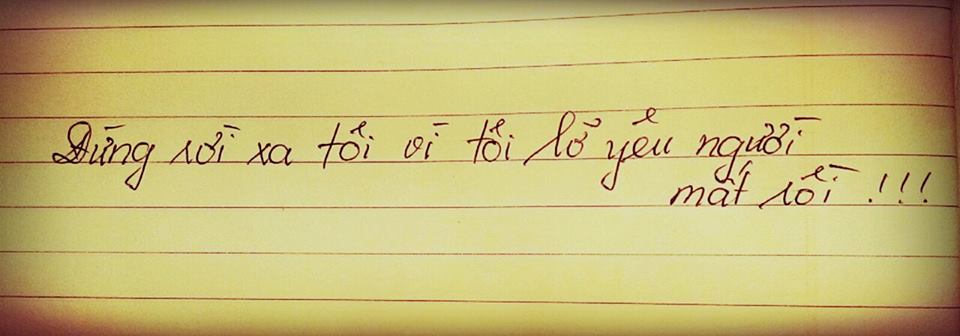 Đừng rời xa tôi vì tôi lở yêu người
mất rồi !!!